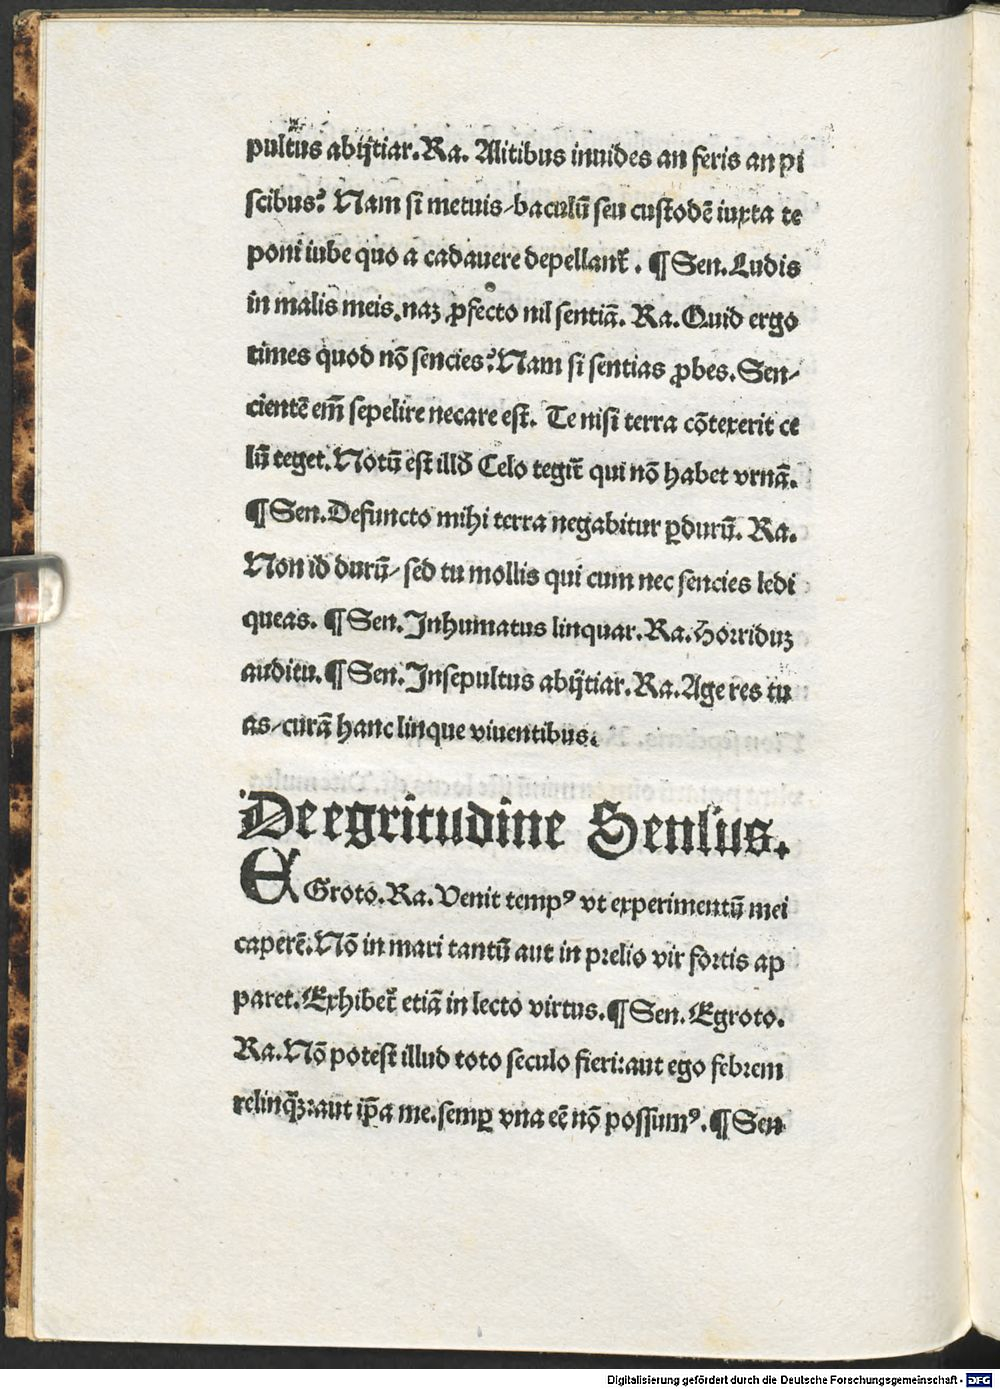 pultus abijtiar. Ra. Alitibus inuides an feris an pi
scibus? Nam si metuis/baculū seu custodē iuxta te
poni iube quo a cadauere depellant᷑. ¶ Sen. Ludis
in malis meis. naꝫ ꝓfecto nil sentiā. Ra. Quid ergo
times quod nō sencies? Nam si sentias ꝓbes. Sen⸗
cientē em̄ sepelire necare est. Te nisi terra cōtexerit ce
lū teget. Notū est illđ Celo tegit᷑ qui nō habet vrnā.
¶ Sen. Defuncto mihi terra negabitur ꝑdurū. Ra.
Non id durū/ sed tu mollis qui cum nec sencies ledi
queas. ¶ Sen. Inhumatus linquar. Ra. Horriduꝫ
auditu. ¶ Sen. Insepultus abijtiar. Ra. Age res tu
as/curā hanc linque viuentibus.
De egritudine Senſus.
EGroto. Ra. Venit tempꝰ vt experimentū mei
caperē. Nō in mari tantū aut in prelio vir fortis ap
paret. Exhibet᷑ etiā in lecto virtus. ¶ Sen. Egroto.
Ra. Nō potest illud toto seculo fieri: aut ego febrem
relinqꝫ: aut ip̄a me. semꝑ vna eē nō possumꝰ. ¶ Sen
Digitalisierung gefördert durch die Deutsche Forschungsgemeinschaft - DFG